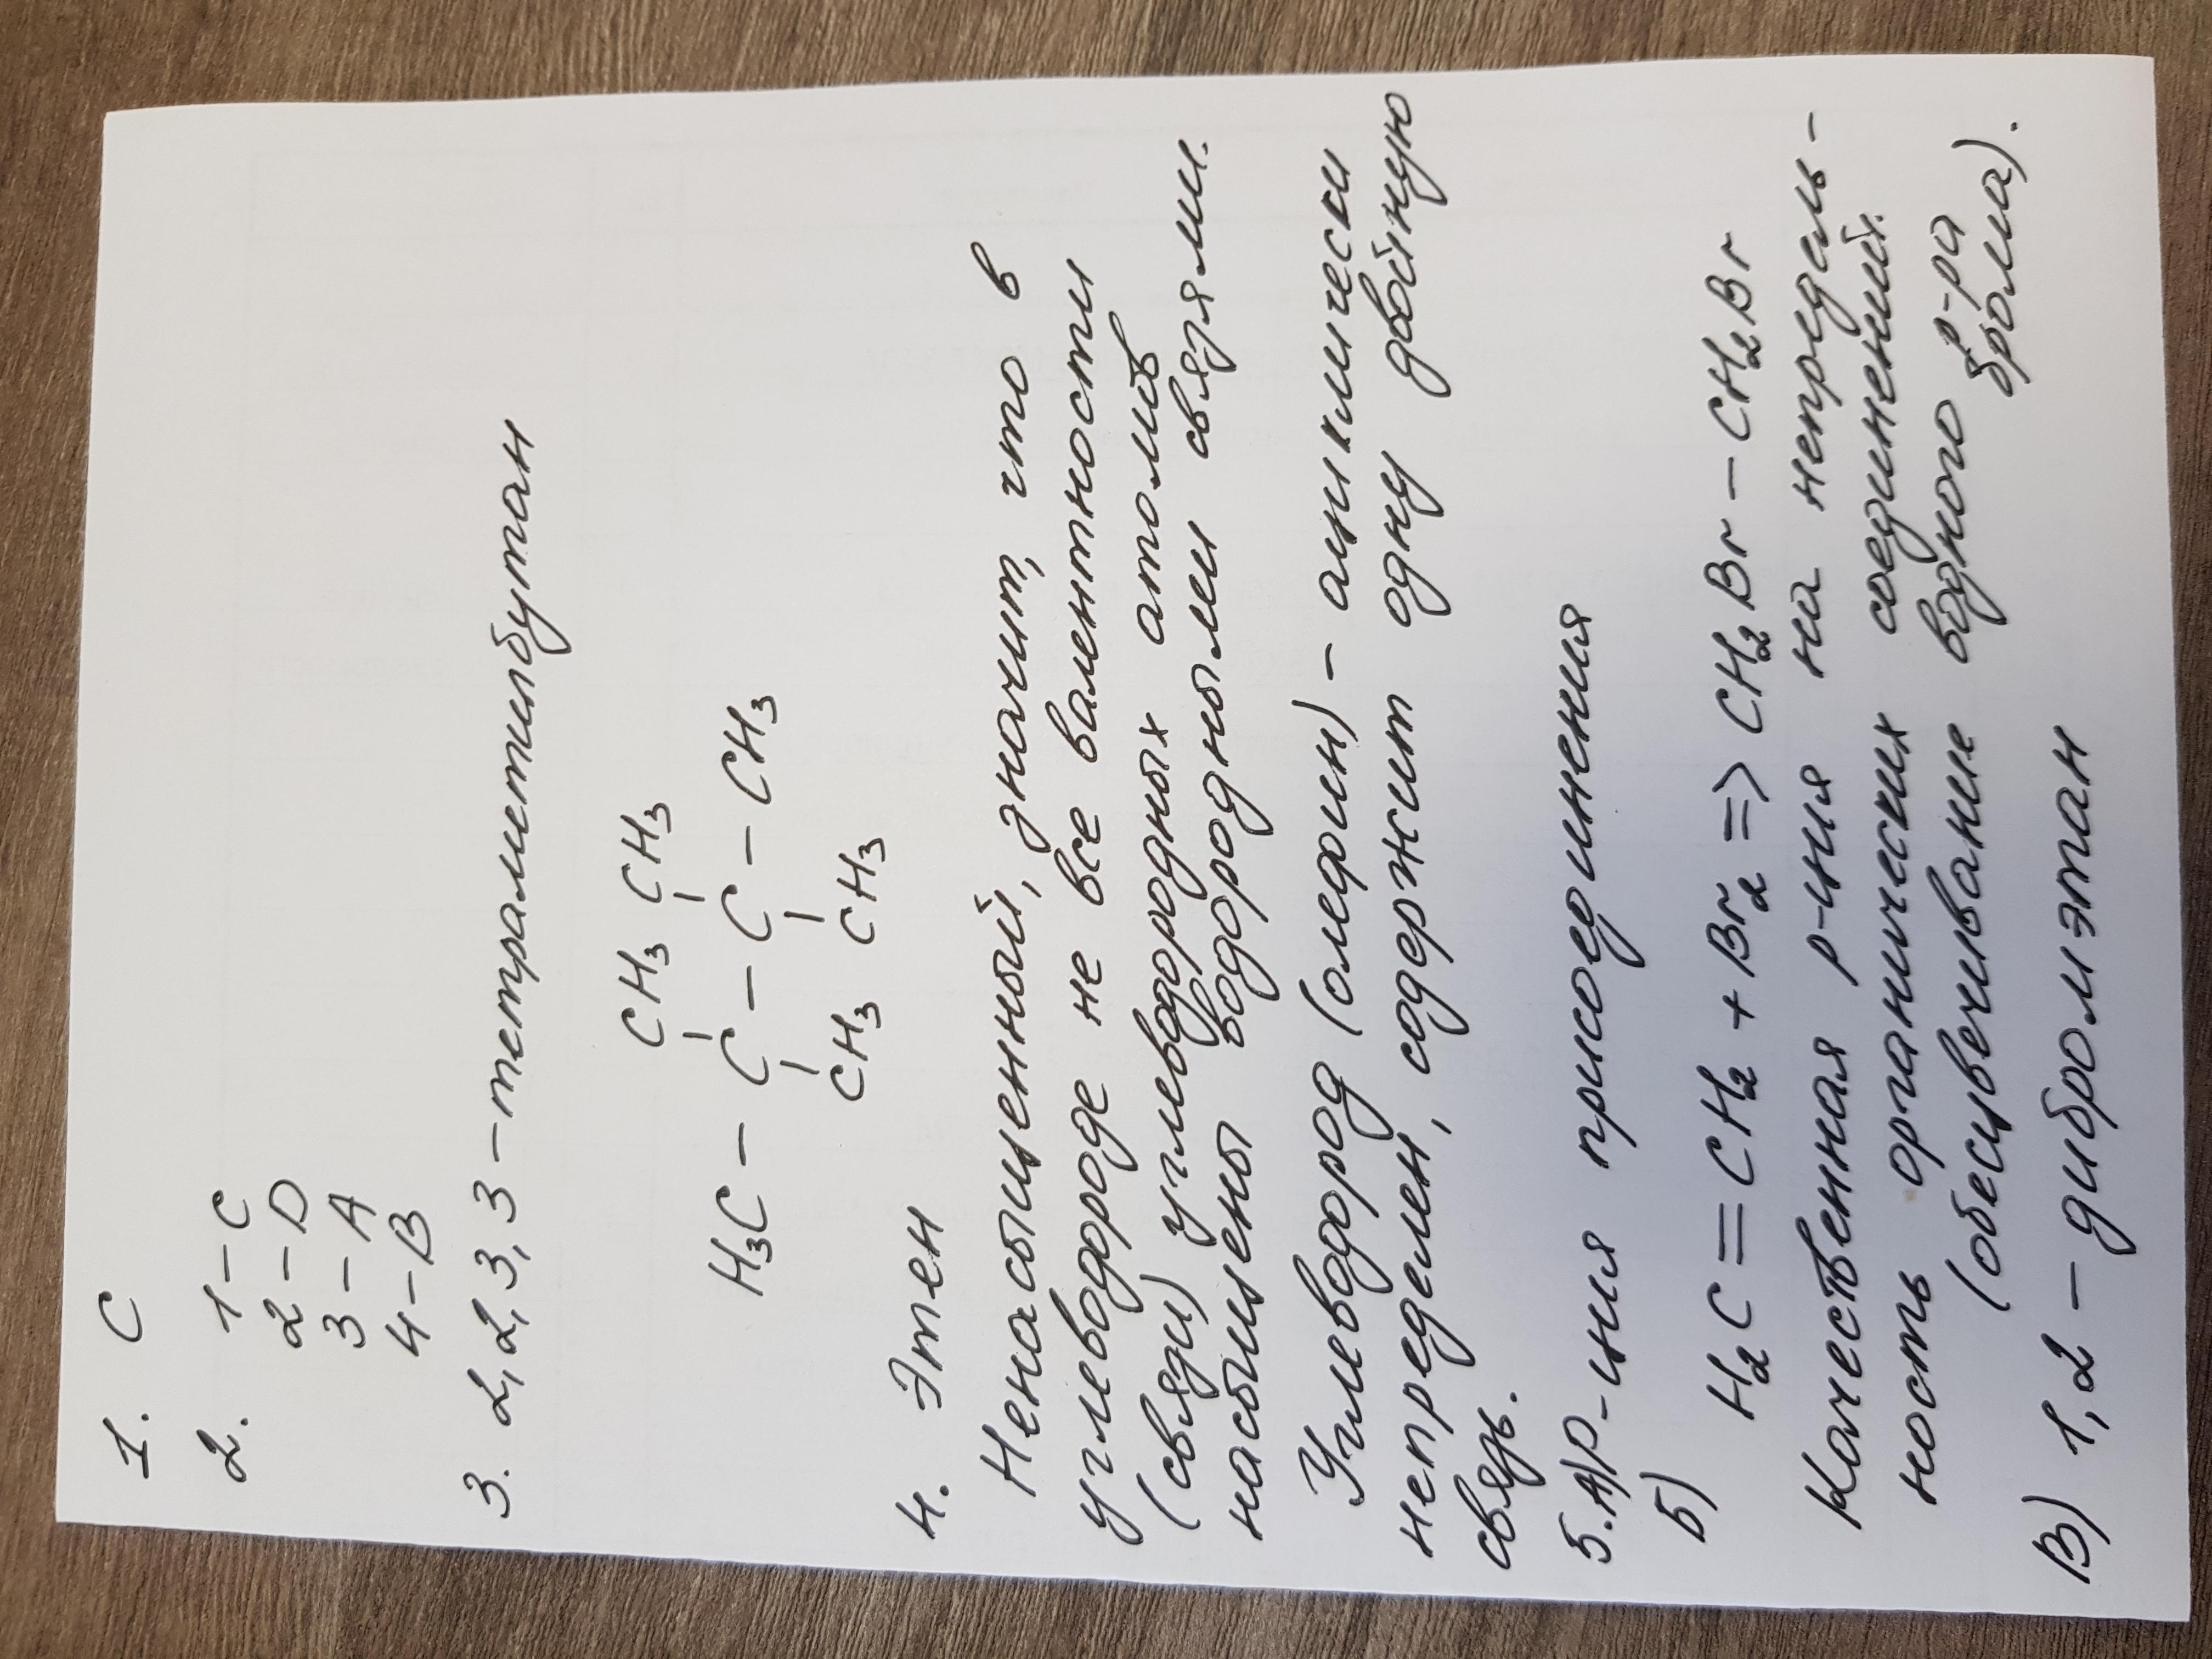 1. C
2. 1 – C
2 – D
3 – A
4 – B
3. 2,2,3,3 – тетраметилбутан
CH₃ CH₃
H₃C – C – C – CH₃
CH₃ CH₃
4. Этен
Ненасыщенный, значит, что в
углеводороде не все валентности
(связи) углеводородных атомов
насыщены водородными связями.
Углеводород (олефин) – ациклически
непределен, содержит одну двойную
связь.
5. А) Р-ция присоединения
Б) H₂C = CH₂ + Br₂ => CH₂Br – CH₂Br
Качественная р-ция на непредель-
ность органических соединений.
(обесцвечивание водного р-ра
брома).
В) 1,2 – дибромэтан